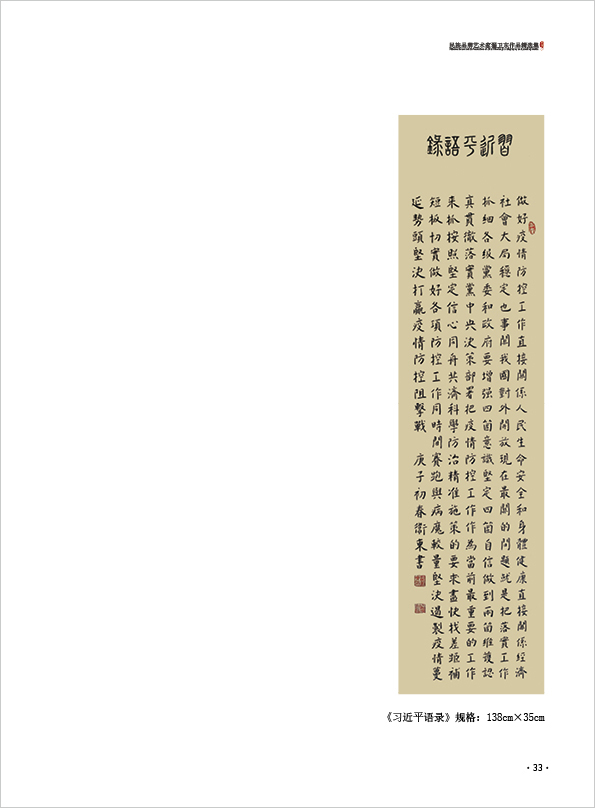 民族品牌艺术家卫东作品精选集
習近平語錄
做好疫情防控工作直接關係人民生命安全和身體健康直接關係經濟
社會大局穩定也事關我國對外開放現在最關的問題就是把落實工作
抓細各級黨委和政府要增强四箇意識堅定四箇自信做到兩箇維護認
真貫徹落實黨中央決策部署把疫情防控工作作為當前最重要的工作
來抓按照堅定信心同舟共濟科學防治精准施策的要求盡快找差距補
短板切實做好各項防控工作同時間賽跑與病魔較量堅決遏製疫情蔓
延勢頭堅決打贏疫情防控阻擊戰 庚子初春衛東書
《习近平语录》规格：138cm×35cm
·33·